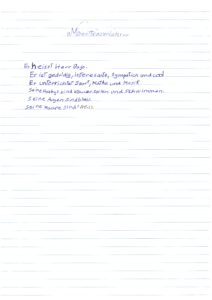 Mein Traumlehrer
Er heisst Herr
Er ist geduldig, interessant, sympatich und cool
Er unterrichtet Sport, Mathe und Musik
Seine Hobbys sind Wandern und Schwimmen.
Seine Augen sind blau.
Seine Haare sind